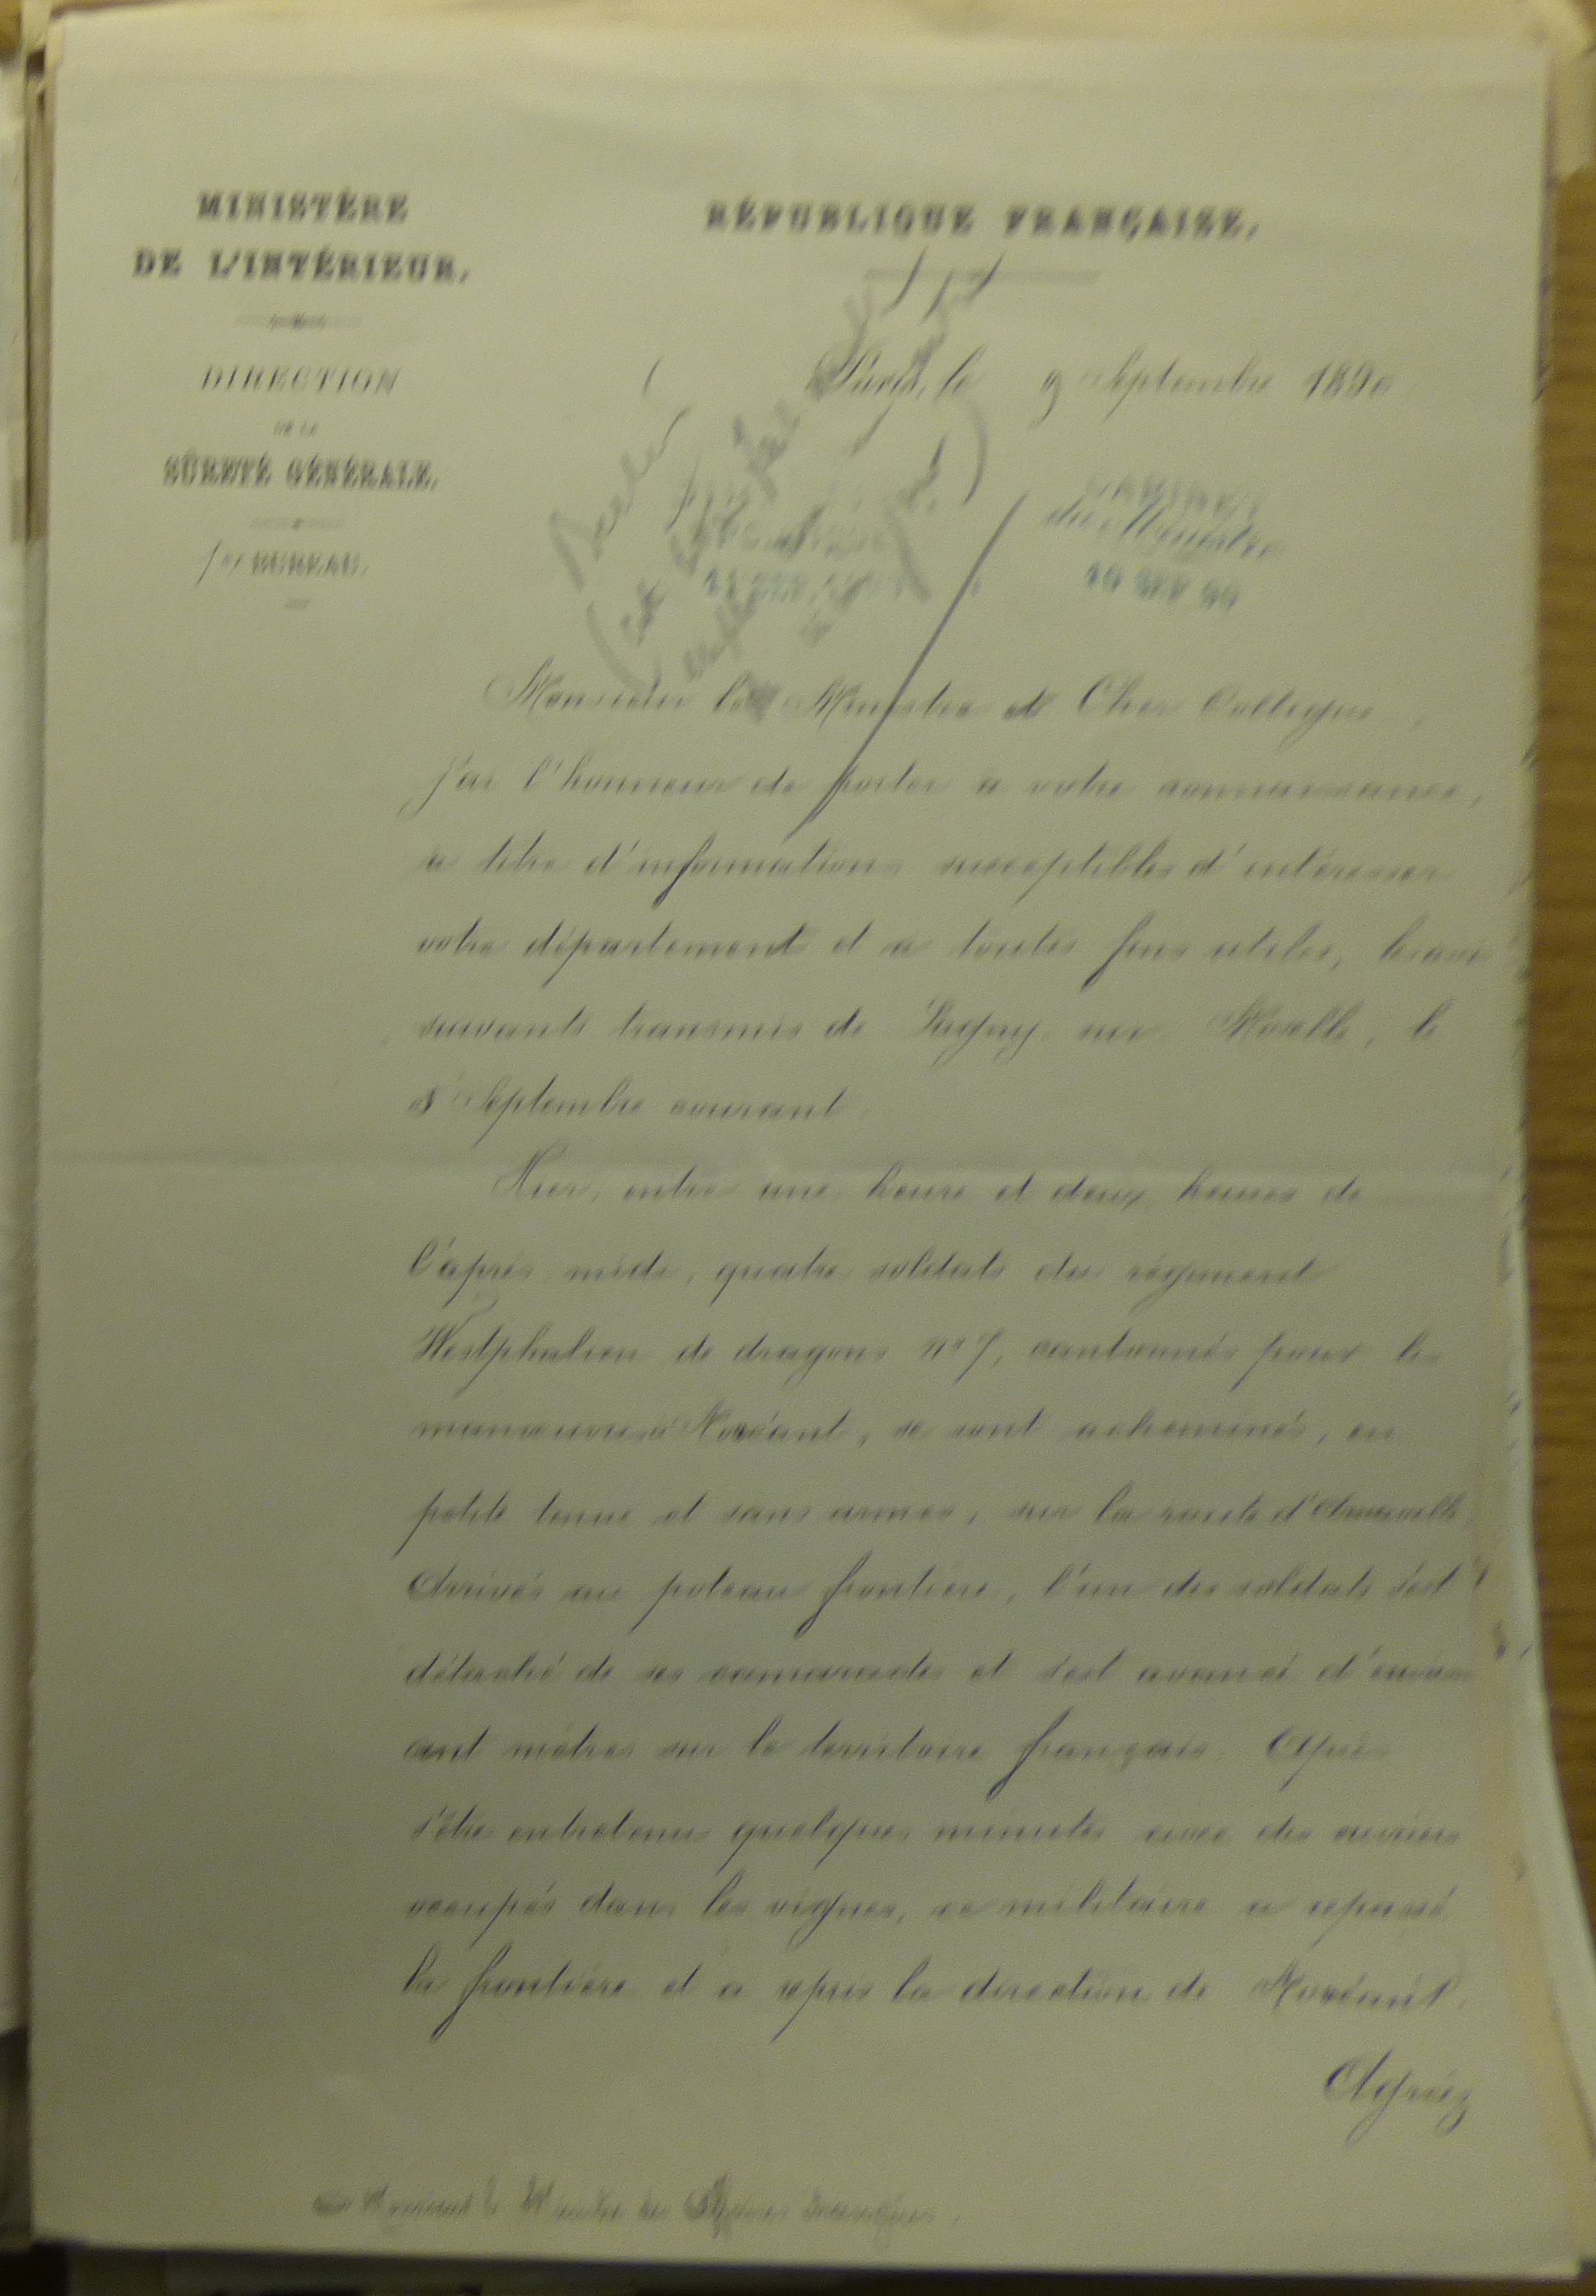 MINISTÈRE
DE L'INTÉRIEUR.
DIRECTION
DE LA
SÛRETÉ GÉNÉRALE.
1er BUREAU.
RÉPUBLIQUE FRANÇAISE.
Paris, le 9 Septembre 1890
CABINET
du Ministre
10 SEP 90
Monsieur le Ministre et Cher Collègue,
J'ai l'honneur de porter à votre connaissance,
à titre d'informations susceptibles d'intéresser
votre département et à toutes fins utiles, les avis
suivants transmis de Pagny sur Moselle, le
8 Septembre courant.
Hier, entre une heure et deux heures de
l'après midi, quatre soldats du régiment
Westphalien de dragons no 7, cantonnés pour les
manœuvres à Novéant, se sont acheminés, en
petite tenue et sans armes, sur la route d'Arnaville.
Arrivés au poteau frontière, l'un des soldats s'est
détaché de ses camarades et s'est avancé d'environ
cent mètres sur le territoire français. Après
s'être entretenu quelques minutes avec des ouvriers
occupés dans les vignes, ce militaire a repassé
la frontière et a repris la direction de Novéant.
Agréez
Monsieur le Ministre des Affaires Etrangères.